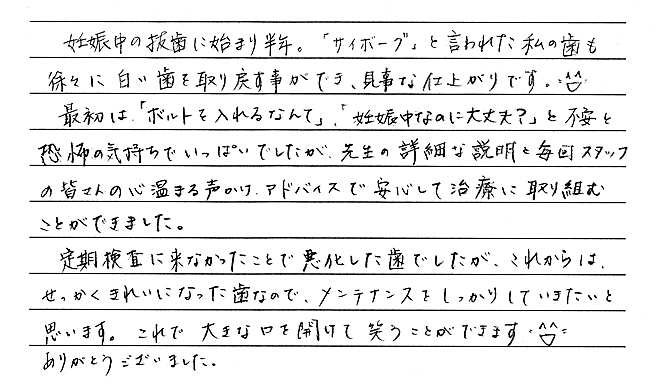 妊娠中の抜歯に始まり半年。「サイボーグ」と言われた私の歯も
徐々に白い歯を取り戻す事ができ、見事な仕上がりです。
最初は、「ボルトを入れるなんて」、「妊娠中なのに大丈夫?」と不安と
恐怖の気持ちでいっぱいでしたが、先生の詳細な説明と毎回スタッフ
の皆さんの心温まる声かけ、アドバイスで安心して治療に取り組む
ことができました。
定期検査に来なかったことで悪化した歯でしたが、これからは、
せっかくきれいになった歯なので、メンテナンスをしっかりしていきたいと
思います。これで大きな口を開けて笑うことができます
ありがとうございました。